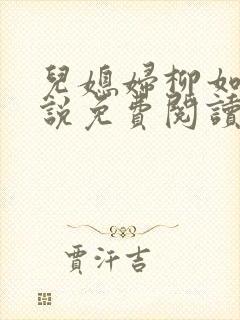 兒媳婦柳如
說免費閱讀
賈汗吉